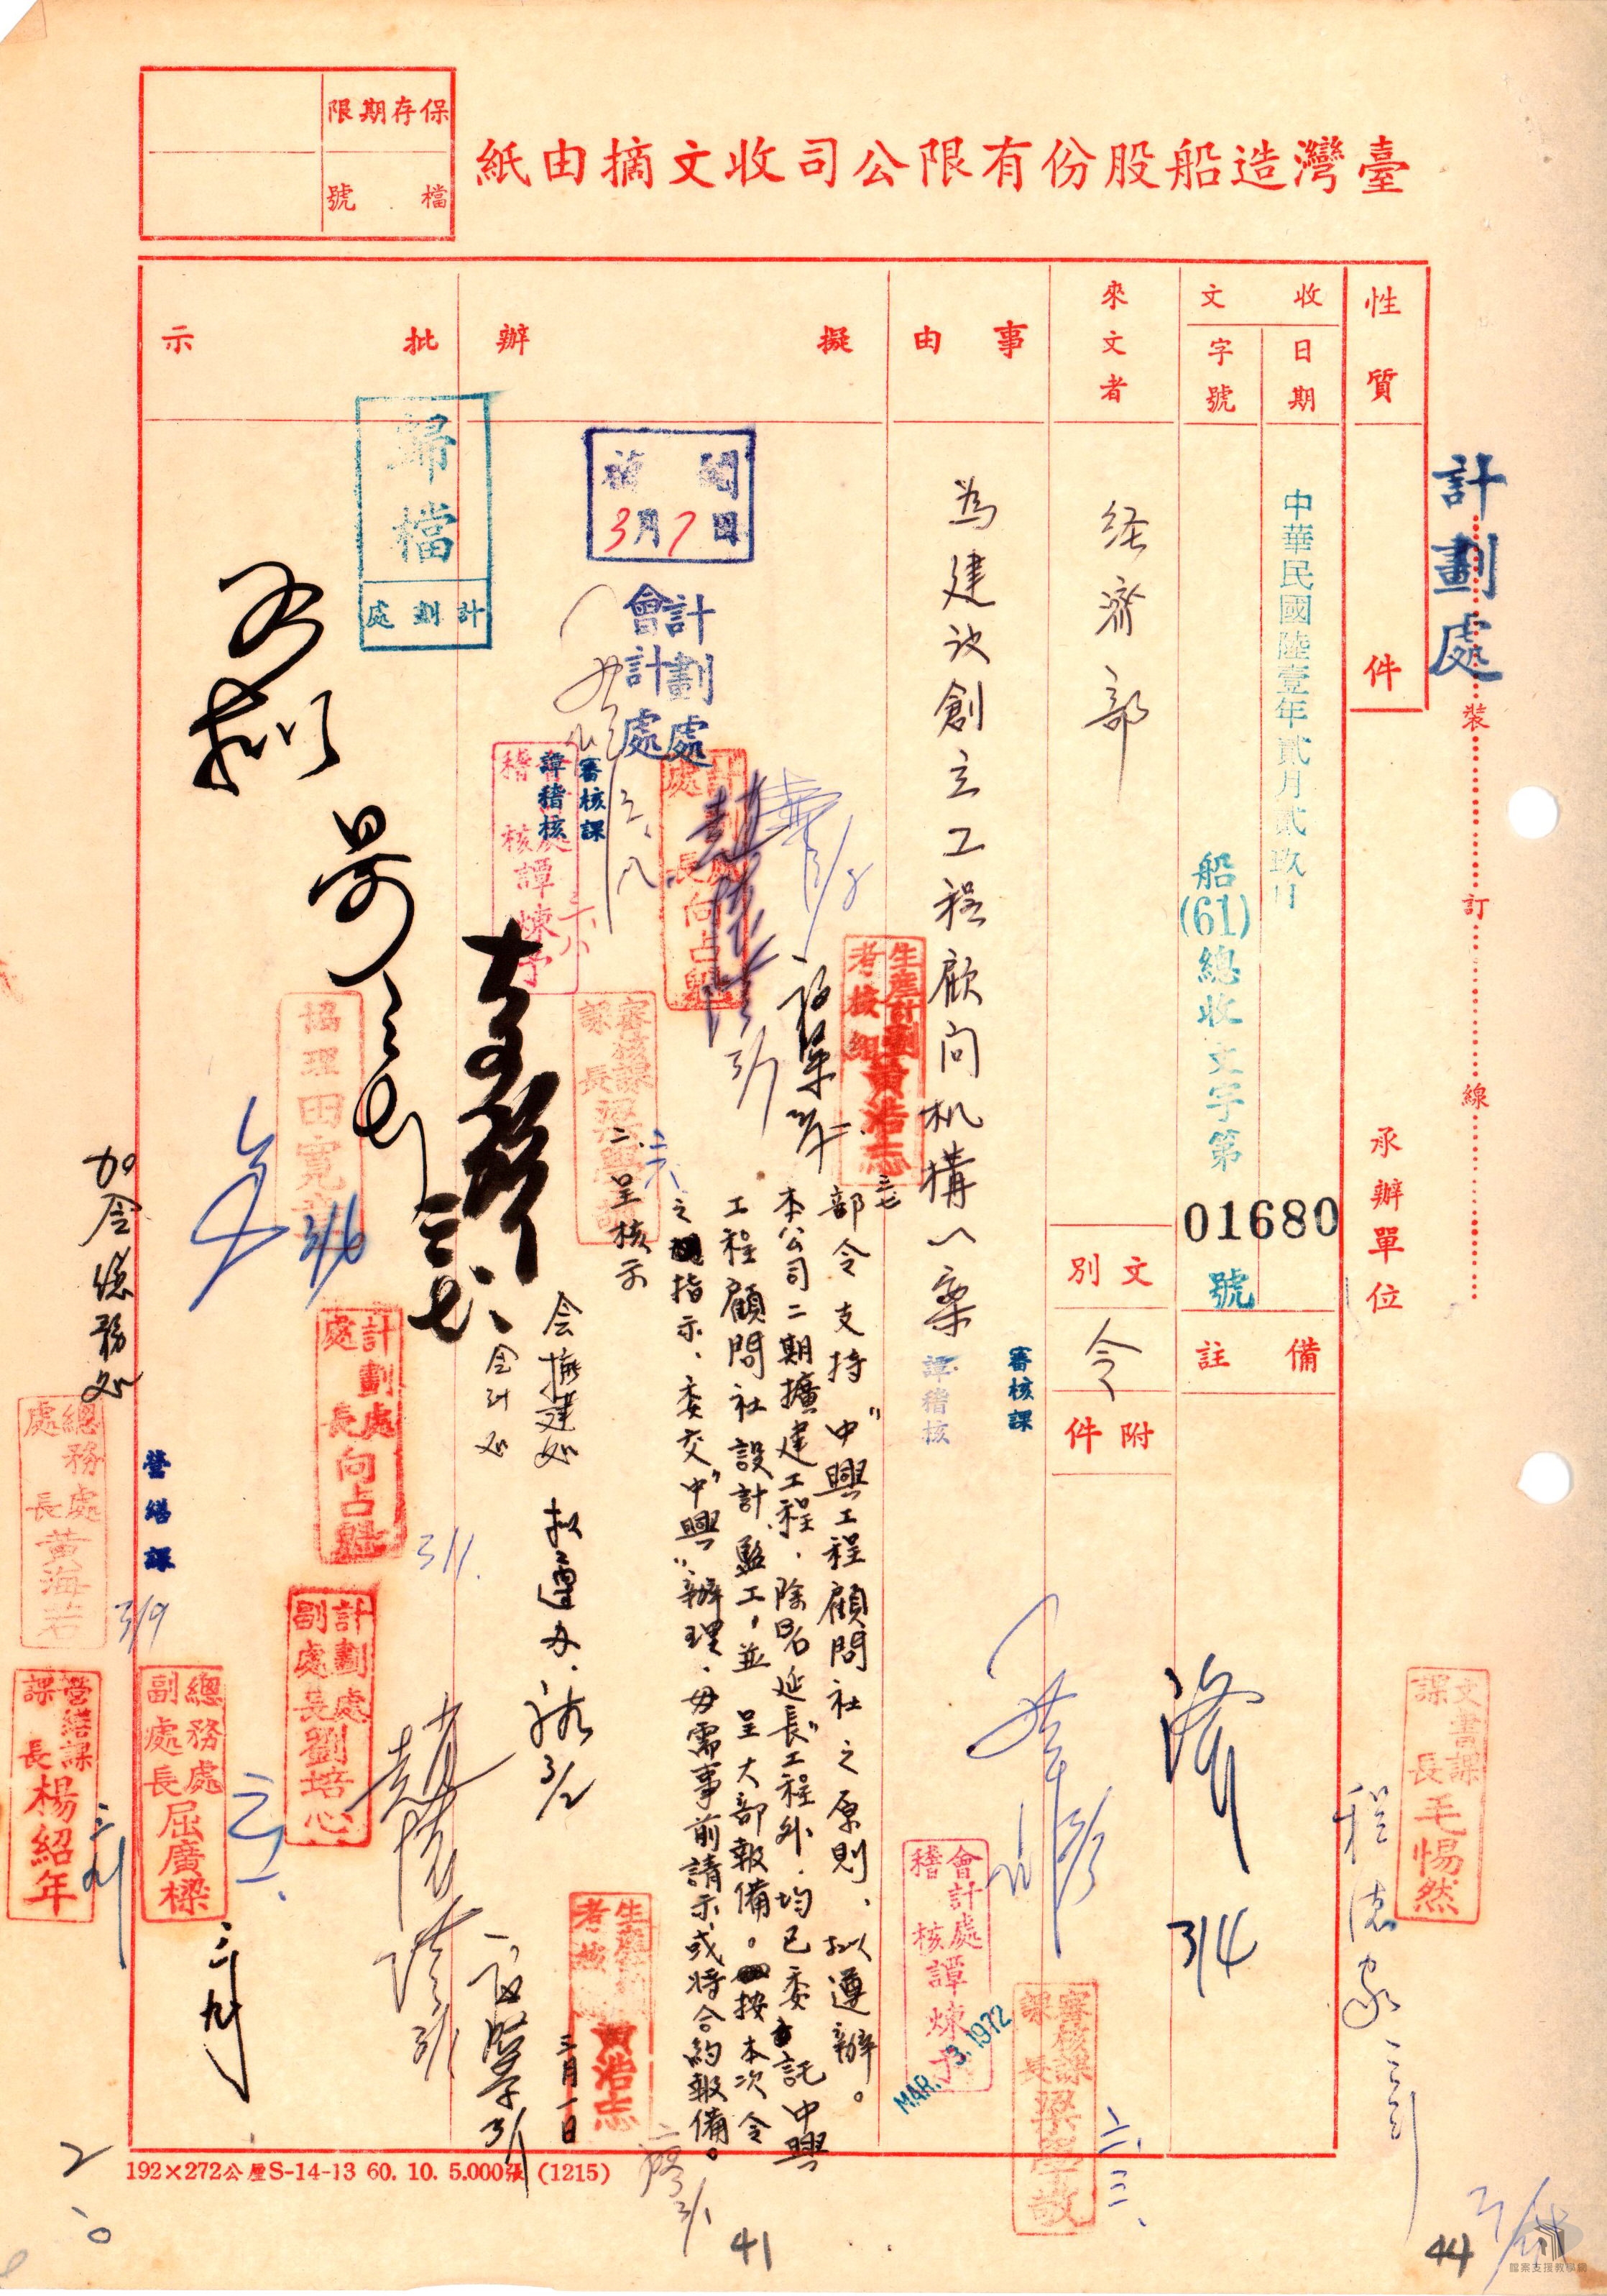 臺灣造船股份有限公司收文摘由紙
保存期限
檔號
性質
件
承辦單位
收文
日期
字號
中華民國陸壹年貳月貳玖日
船(61)總收文字第
01680
號
備註
來文者
經濟部
文別
令
附件
事由
為建議創立工程顧問机構一案
審核課
譚稽核
擬辦
批示
計劃處
裝
訂
線
部令支持"中興工程顧問社之原則,擬遵辦。
本公司二期擴建工程,除船台延長工程外,均已委託中興
工程顧問社設計監工,並呈大部報備。按本次令
之指示,委交"中興"辦理,毋需事前請示或將合約報備。
二、呈核示
三月一日
會擴建處
會計處
擬遵办
加會總務處
歸檔
計劃處
3月7日
計劃處
會計處
審核課
譚稽核
會計處
稽核譚煉予
計劃處
處長向占魁
生產計劃
考核組黃浩志
審核課
課長梁學敏
協理田寬
計劃處
處長向占魁
計劃處
副處長劉培心
總務處
處長黃海若
營繕課
總務處
副處長屈廣樑
營繕課
課長楊紹年
3/9
生產計劃
考核組黃浩志
會計處
稽核譚煉予
MAR. 3. 1972
審核課
課長梁學敏
文書課
課長毛惕然
3/4
192×272公厘S-14-13 60. 10. 5.000張 (1215)
41
44
檔案支援教學網